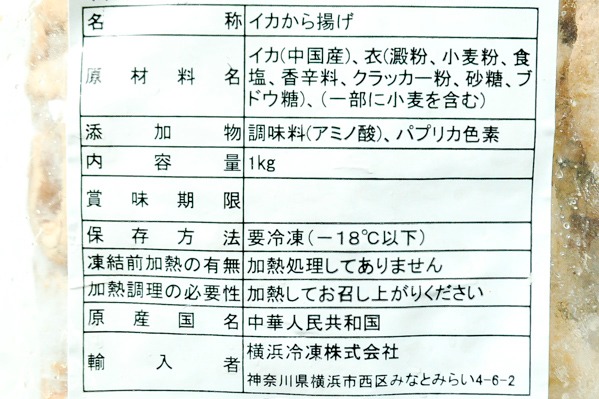 名称 イカから揚げ
原材料名 イカ(中国産)、衣(澱粉、小麦粉、食
塩、香辛料、クラッカー粉、砂糖、ブ
ドウ糖)、(一部に小麦を含む)
添加物 調味料(アミノ酸)、パプリカ色素
内容量 1kg
賞味期限
保存方法 要冷凍(-18℃以下)
凍結前加熱の有無 加熱処理してありません
加熱調理の必要性 加熱してお召し上がりください
原産国名 中華人民共和国
輸入者 横浜冷凍株式会社
神奈川県横浜市西区みなとみらい4-6-2